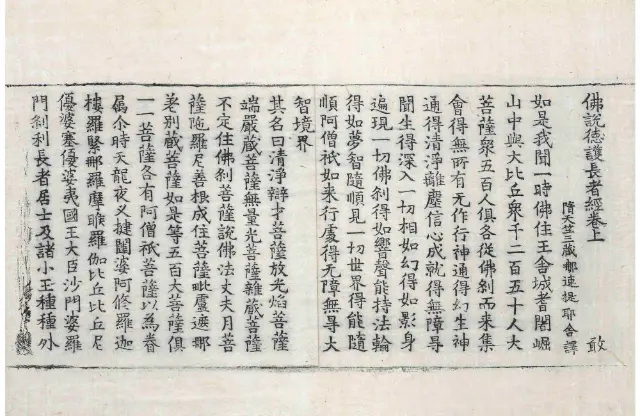 佛說德護長者經卷上
敢
隋天竺三藏那連提耶舍譯
如是我聞一時佛住王舍城耆闍崛
山中與大比丘衆千二百五十人大
菩薩衆五百人俱各從佛剎而來集
會得無所有无作行神通得幻生神
通得清淨離塵信心成就得無障㝵
聞生得深入一切相如幻得如影身
遍現一切佛剎得如響聲能持法輪
得如夢智隨順見一切世界得能隨
順阿僧祇如來行處得无障無㝵大
智境界
其名曰清淨辯才菩薩放光焰菩薩
端嚴藏菩薩無量光菩薩雜藏菩薩
不定住佛剎菩薩說佛法丈夫月菩
薩陁羅尼善根成住菩薩毗盧遮那
差別藏菩薩如是等五百大菩薩俱
一一菩薩各有阿僧祇菩薩以為眷
屬尒時天龍夜叉揵闥婆阿修羅迦
樓羅緊那羅摩睺羅伽比丘比丘尼
優婆塞優婆夷國王大臣沙門婆羅
門剎利長者居士及諸小王種種外